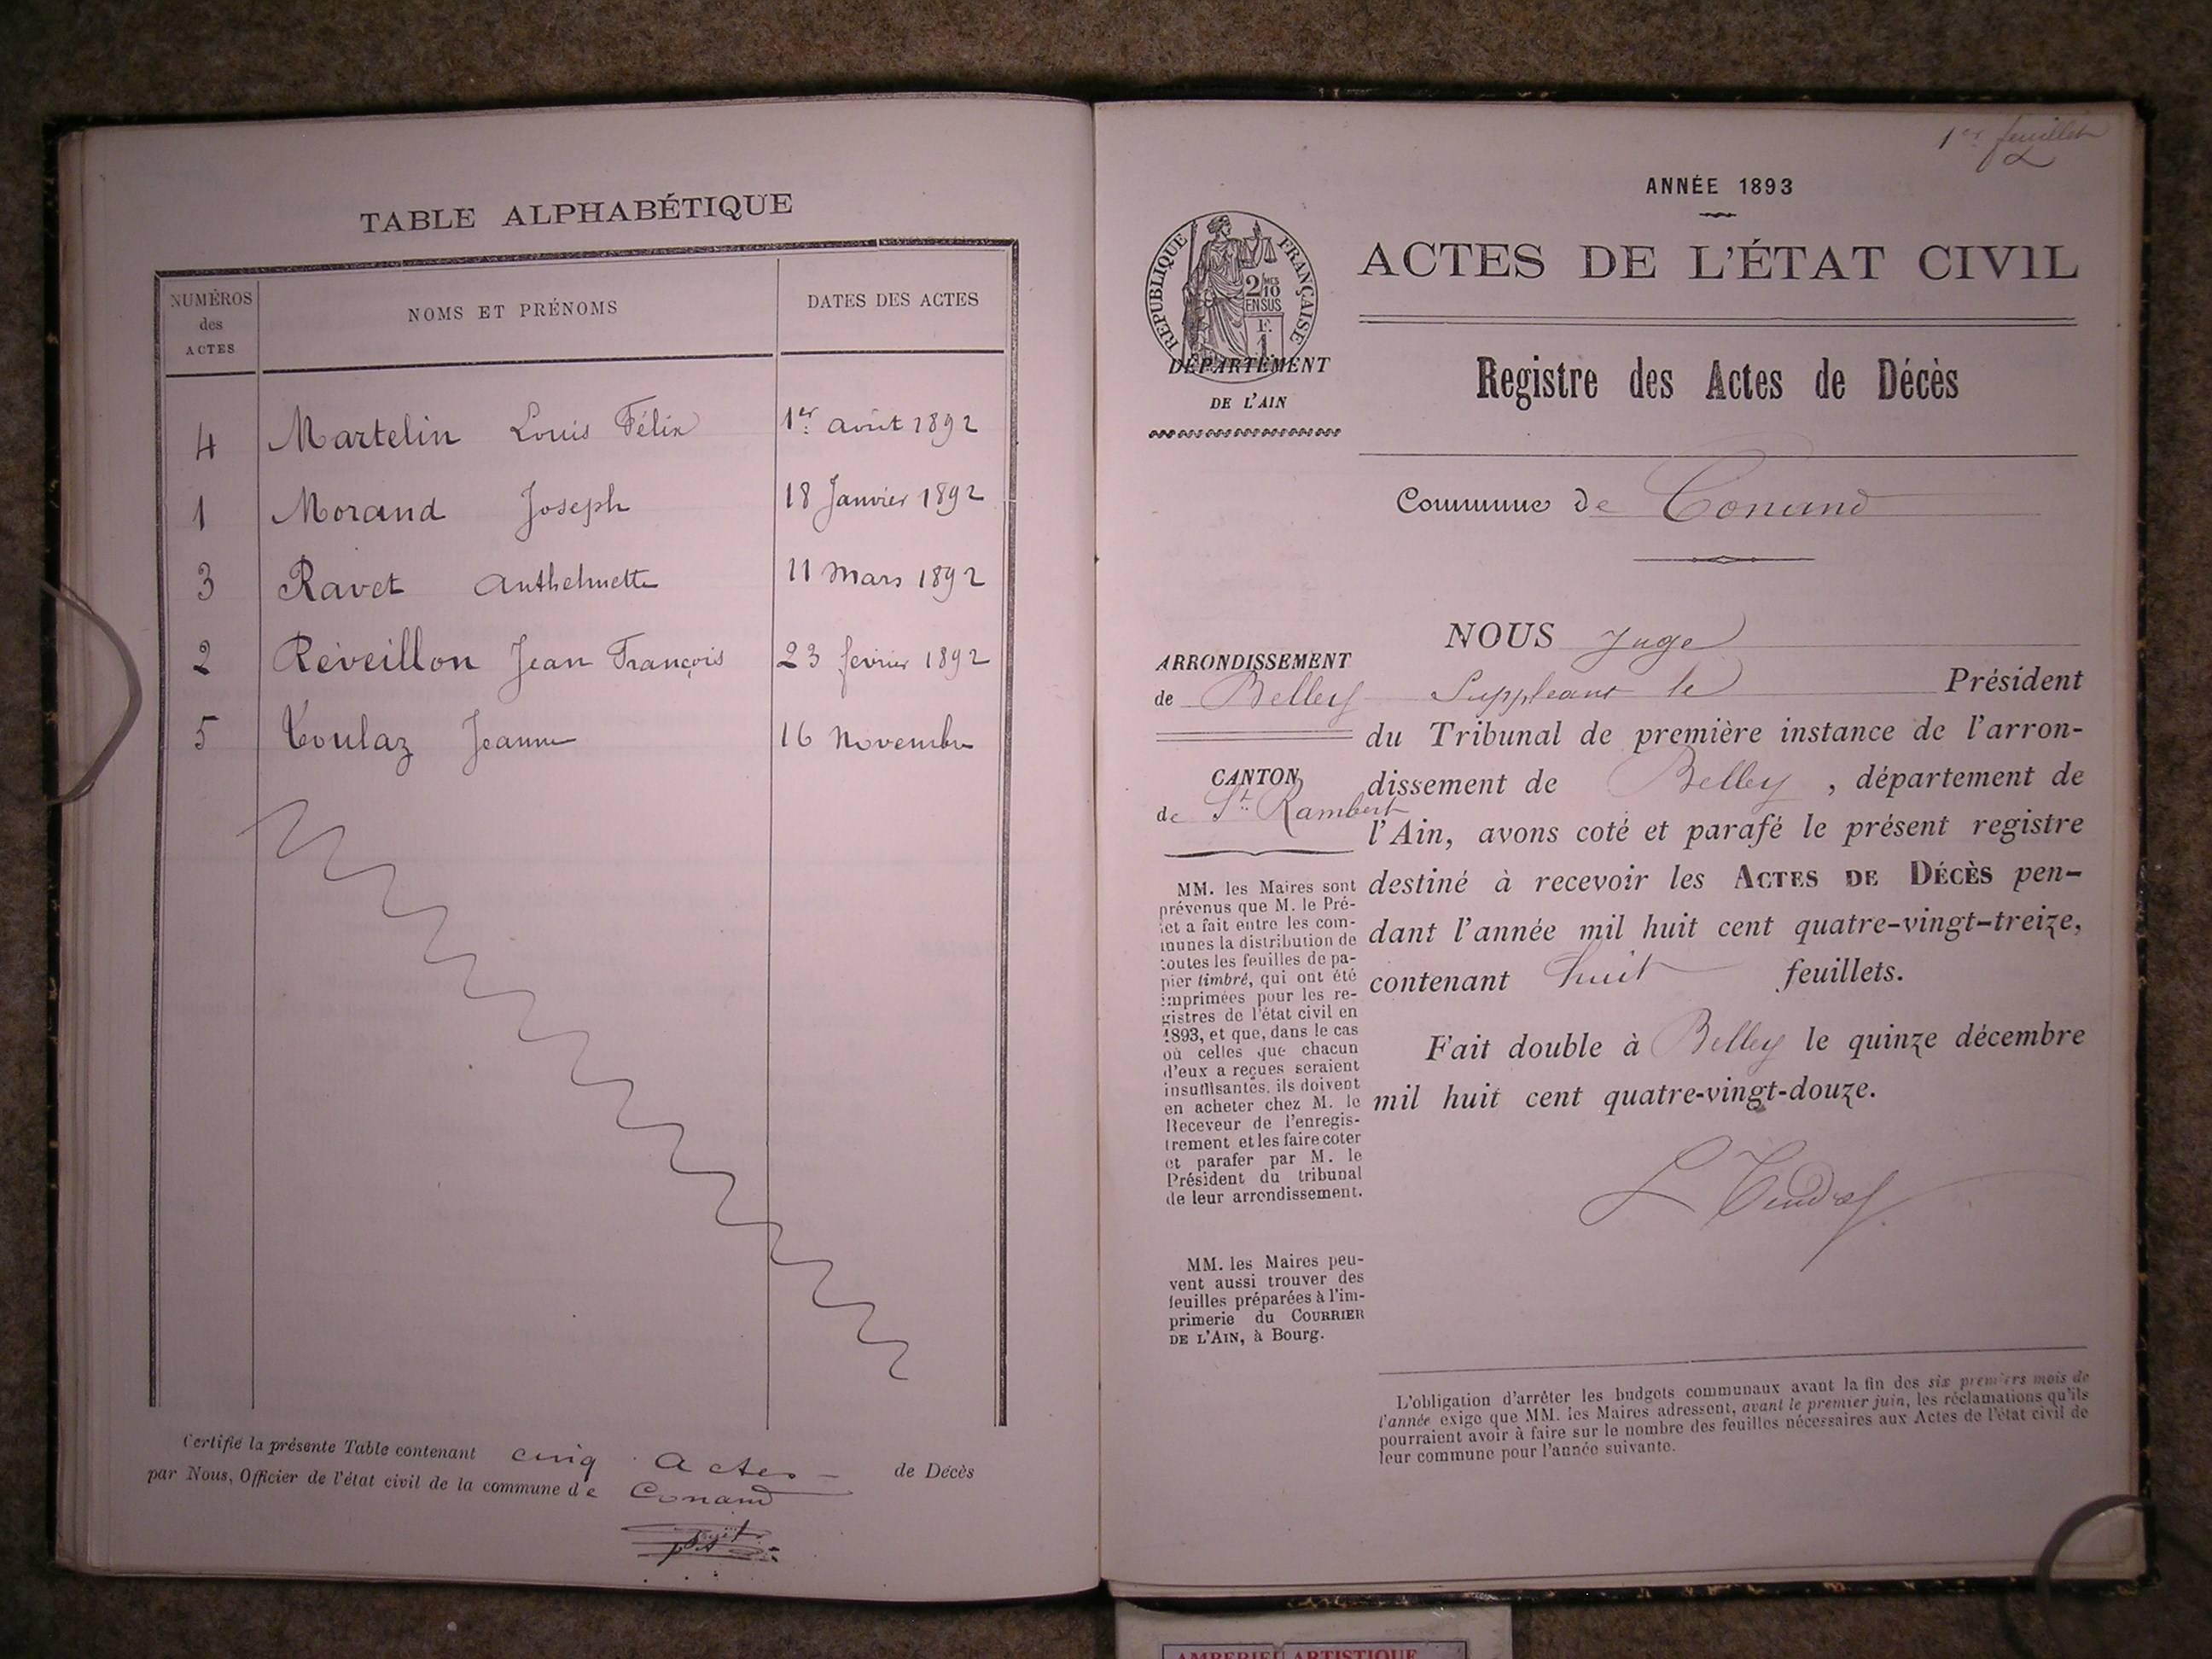 TABLE ALPHABÉTIQUE
NUMÉROS des ACTES
NOMS ET PRÉNOMS
DATES DES ACTES
4 Martelin Louis Félix 1er août 1892
1 Morand Joseph 18 Janvier 1892
3 Ravet Anthelmette 11 Mars 1892
2 Réveillon Jean François 23 février 1892
5 Toulaz Jeanne 16 Novembre
Certifié la présente Table contenant cinq Actes de Décès
par Nous, Officier de l'état civil de la commune de Conand
1er feuillet
ANNÉE 1893
ACTES DE L'ÉTAT CIVIL
RÉPUBLIQUE FRANÇAISE
2/10MES
EN SUS
F.
1
DÉPARTEMENT
DE L'AIN
Registre des Actes de Décès
Commune de Conand
ARRONDISSEMENT
de Belley
CANTON
de St. Rambert
MM. les Maires sont
prévenus que M. le Pré-
fet a fait entre les com-
munes la distribution de
toutes les feuilles de pa-
pier timbré, qui ont été
imprimées pour les re-
gistres de l'état civil en
1893, et que, dans le cas
où celles que chacun
d'eux a reçues seraient
insuffisantes, ils doivent
en acheter chez M. le
Receveur de l'enregis-
trement et les faire coter
et parafer par M. le
Président du tribunal
de leur arrondissement.
MM. les Maires peu-
vent aussi trouver des
feuilles préparées à l'im-
primerie du COURRIER
DE L'AIN, à Bourg.
NOUS Juge
Suppléant le Président
du Tribunal de première instance de l'arron-
dissement de Belley, département de
l'Ain, avons coté et parafé le présent registre
destiné à recevoir les ACTES DE DÉCÈS pen-
dant l'année mil huit cent quatre-vingt-treize,
contenant huit feuillets.
Fait double à Belley le quinze décembre
mil huit cent quatre-vingt-douze.
L'obligation d'arrêter les budgets communaux avant la fin des six premiers mois de
l'année exige que MM. les Maires adressent, avant le premier juin, les réclamations qu'ils
pourraient avoir à faire sur le nombre des feuilles nécessaires aux Actes de l'état civil de
leur commune pour l'année suivante.
AMBERIEU ARTISTIQUE